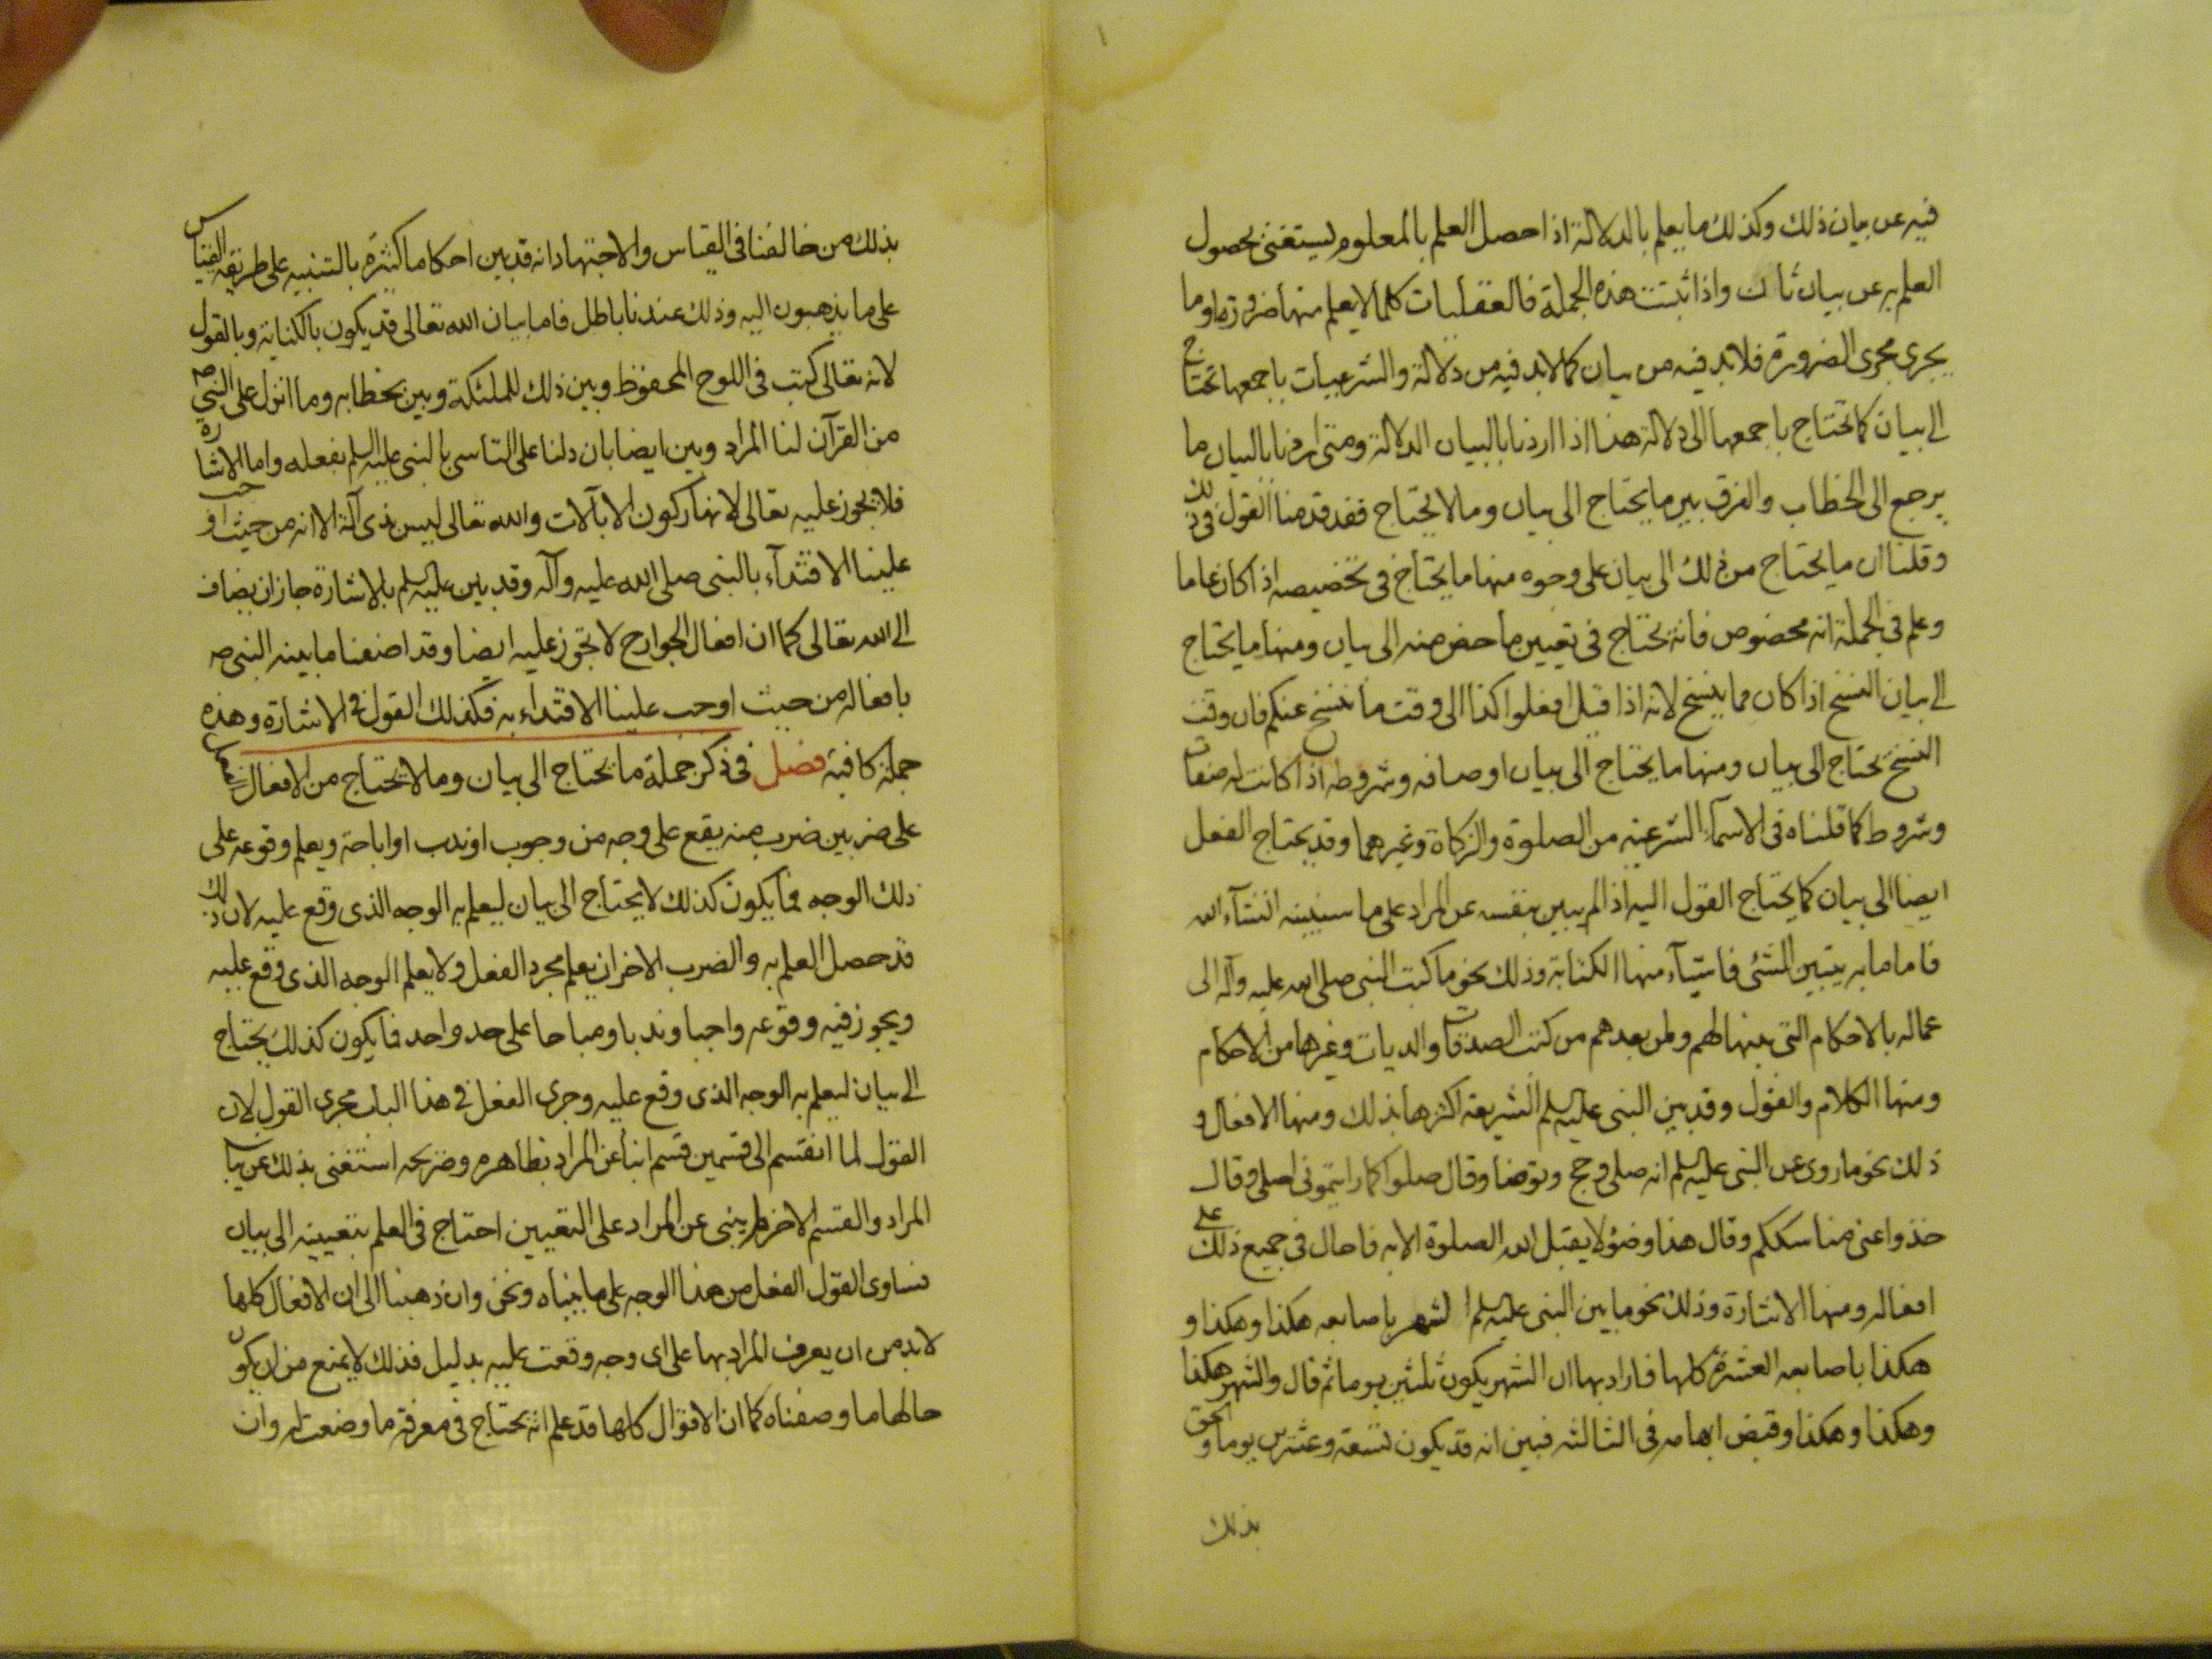 فيه عن بيان ذلك وكذلك ما يعلم بالدلالة اذا حصل العلم بالمعلوم ليستغنى بحصول
العلم به عن بيان ثان واذا ثبتت هذه الجملة فالعقليات كلما لا يعلم منها ضرورة او ما
يجرى مجرى الضرورة فلا بد فيه من بيان كما لا بد فيه من دلالة والشرعيات باجمعها تحتاج
الى بيان كما تحتاج باجمعها الى دلالة هذا اذا اردنا بالبيان الدلالة ومتى اردنا بالبيان ما
يرجع الى الخطاب والفرق بين ما يحتاج الى بيان وما لا يحتاج فقد قدمنا القول فى ذلك
وقلنا ان ما يحتاج من ذلك الى بيان على وجوه منها ما يحتاج فى تخصيصه اذا كان عاما
وعلم فى الجملة انه مخصوص فانه يحتاج فى تعيين ما خص منه الى بيان ومنها ما يحتاج
الى بيان النسخ اذا كان مما ينسخ لانه اذا قيل افعلوا كذا الى وقت ما ننسخ عنكم فان وقت
النسخ يحتاج الى بيان ومنها ما يحتاج الى بيان اوصافه وشروطه اذا كانت له صفات
وشروط كما قلناه فى الاسماء الشرعية من الصلوة والزكاة وغيرهما وقد يحتاج الفعل
ايضا الى بيان كما يحتاج القول اليه اذا لم يبين بنفسه عن المراد على ما سنبينه انشآء الله
فاما ما به يتبين الشئ فاشيآء منها الكتابة وذلك نحو ما كتب النبى صلى الله عليه وآله الى
عماله بالاحكام التى بينها لهم ولمن بعدهم من كتب الصدقات والديات وغيرها من الاحكام
ومنها الكلام والقول وقد بين النبى عليه السلم الشريعة اكثرها بذلك ومنها الافعال و
ذلك نحو ما روى عن النبى عليه السلم انه صلى وحج وتوضا وقال صلوا كما رايتمونى اصلى وقال
خذوا عنى مناسككم وقال هذا وضؤ لا يقبل الله الصلوة الا به فاحال فى جميع ذلك على
افعاله ومنها الاشارة وذلك نحو ما بين النبى عليه السلم الشهر باصابعه هكذا وهكذا و
هكذا باصابعه العشرة كلها فاراد بها ان الشهر يكون ثلثين يوما ثم قال والشهر هكذا
وهكذا وهكذا وقبض ابهامه فى الثالثه فبين انه قد يكون تسعة وعشرين يوما والحق
بذلك
بذلك من خالفنا فى القياس والاجتهاد انه قد بين احكاما كثيرة بالتنبيه على طريقة القياس
على ما يذهبون اليه وذلك عندنا باطل فاما بيان الله تعالى قد يكون بالكتابة وبالقول
لانه تعالى كتب فى اللوح المحفوظ وبين ذلك للملئكة وبين بخطابه وما انزل على النبى ص
من القرآن لنا المراد وبين ايضا بان دلنا على التاسى بالنبى عليه السلم بفعله واما الاشارة
فلا يجوز عليه تعالى لانها تكون الا بآلات والله تعالى ليس بذى آلة الا انه من حيث اوجب
علينا الاقتدآء بالنبى صلى الله عليه وآله وقد بين عليه السلم بالاشارة جاز ان يضاف
الى الله تعالى كما ان افعال الجوارح لا تجوز عليه ايضا وقد اضفنا ما بينه النبى ص
بافعاله من حيث اوجب علينا الاقتداء به فكذلك القول فى الاشارة وهذه
جملة كافية فصل فى ذكر جملة ما يحتاج الى بيان وما لا يحتاج من الافعال
على ضربين ضرب منه يقع على وجه من وجوب او ندب او اباحة ويعلم وقوعه على
ذلك الوجه فما يكون كذلك لا يحتاج الى بيان ليعلم به الوجه الذى وقع عليه لان ذلك
قد حصل العلم به والضرب الاخر ان يعلم مجرد الفعل ولا يعلم الوجه الذى وقع عليه
ويجوز فيه وقوعه واجبا وندبا ومباحا على حد واحد فما يكون كذلك يحتاج
الى بيان ليعلم به الوجه الذى وقع عليه وجرى الفعل فى هذا الباب مجرى القول لان
القول لما انقسم الى قسمين قسم انبأ عن المراد بظاهره وصريحه استغنى بذلك عن بيان
المراد والقسم الاخر لم ينبى عن المراد على التعيين احتاج فى العلم بتعيينه الى بيان
فساوى القول الفعل من هذا الوجه على ما بيناه ونحن وان ذهبنا الى ان الافعال كلها
لابد من ان يعرف المراد بها على اى وجه وقعت عليه بدليل فذلك لا يمنع من ان يكون
حالها ما وصفناه كما ان الاقوال كلها قد علم انه يحتاج فى معرفة ما وضعت له وان